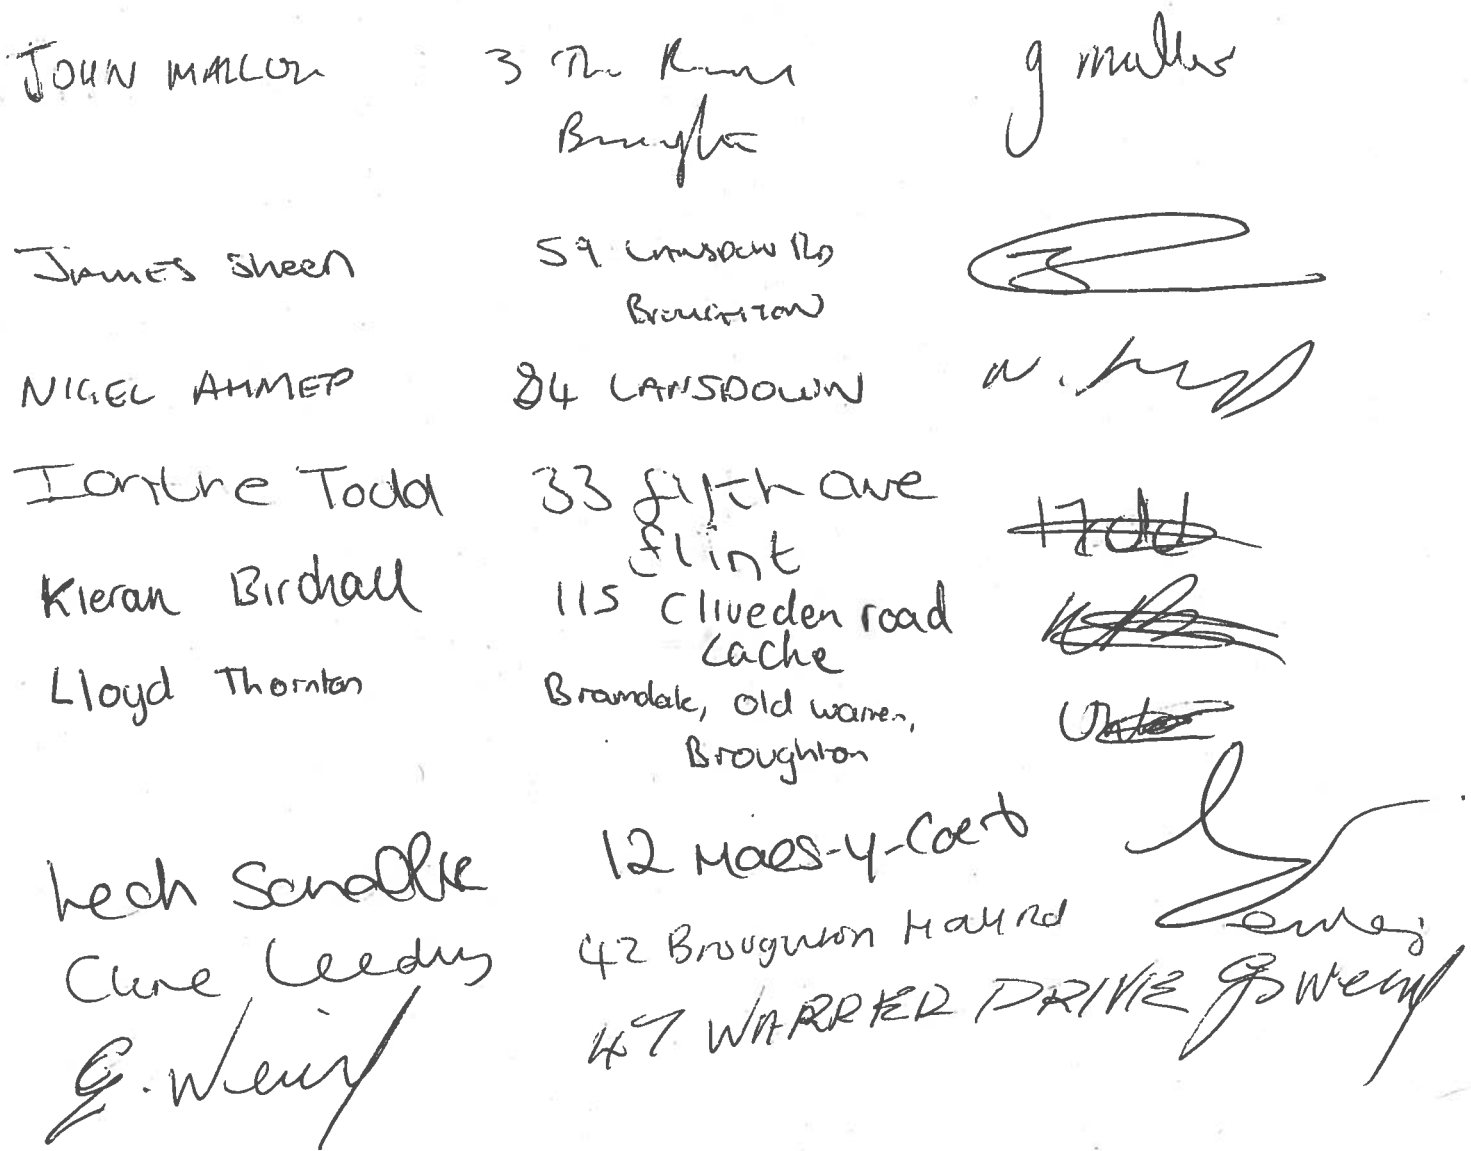 JOHN MALLON 3 The
Broughton
JAMES Sheen 59 LANSDOW RD
BROUGHTON
NIGEL AHMED 84 LANSDOWN N.
Todd 33 fifth ave
flint
Kieran Birchall 115 Cliveden road
Lache
Lloyd Thornton Bramdale, Old Warren,
Broughton
Lech 12 Maes-y-Coed
Clare 42 Broughton Hall Rd
G. 47 WARREN DRIVE